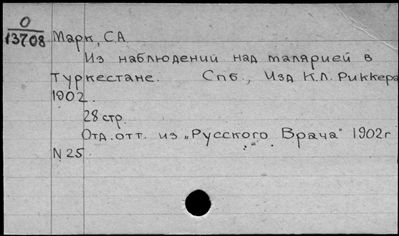 0
13708
Марк, С.А.
Из наблюдений над малярией в
Туркестане. Спб., Изд. К.Л. Риккера
1902.
28 стр.
Отд. отт. из „Русского Врача" 1902г.
N 25.